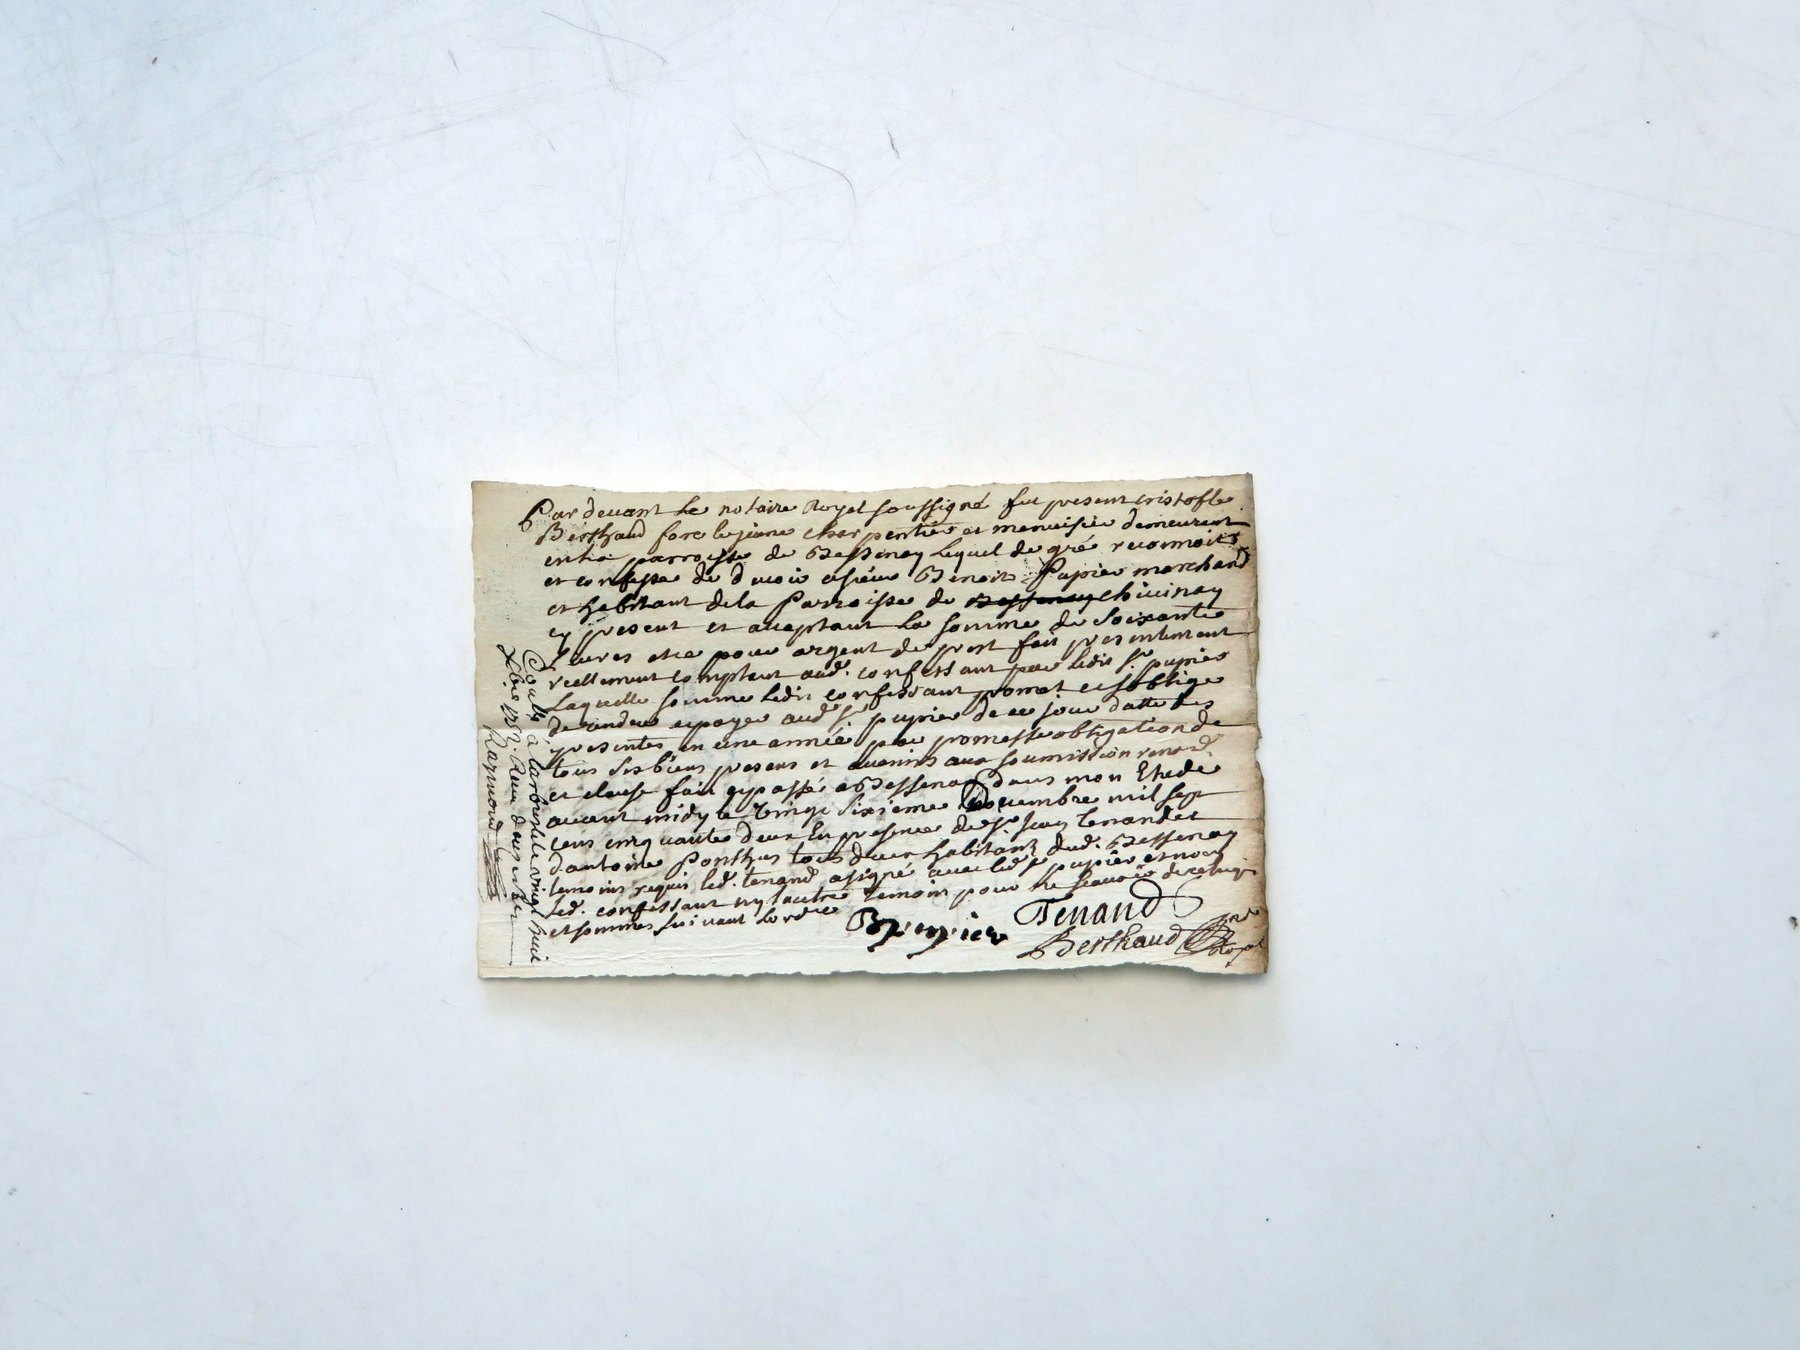 Par devant Le notaire Royal soussigné fut present cristofle
Berthaud fore le jeune charpentier et menuisier demeurant
en la parroisse de Bessenay Lequel de gré reconnoit
et confesse de devoir a sieur Benoit Pupier marchand
et habitant de la Parroisse de Bessenay chivinay
cy present et acceptant La somme de Soixante
Livres et ce pour argent de prest fait presentement
reellement comptant aud. confessant par ledit Sr. pupier
Laquelle somme ledit confessant promet et soblige
de rendre et payer aud. Sr. pupier de ce jour datte des
presentes en une année par promesse obligation de
tous ses biens presens et avenirs aux soumission renond.
et clause fait et passé a Bessenay dans mon Etude
avant midy le vingt Sixieme Novembre mil sept
cens cinquante deux En presence de Sr. Jean Tenand et
dantoine Ponthus tous deux habitants dud. Bessenay
temoins requis led. Tenand a signé avec led. Sr. pupier et non
led. confessant ny lautre temoin pour ne scavoir de ce enquis
et sommes suivant Lordce
Bpupier
Tenand
Berthaud
Nre
Royal
Coullé à Larbresle le vingt huit
9bre 1752. Receu douze sols
Raymond